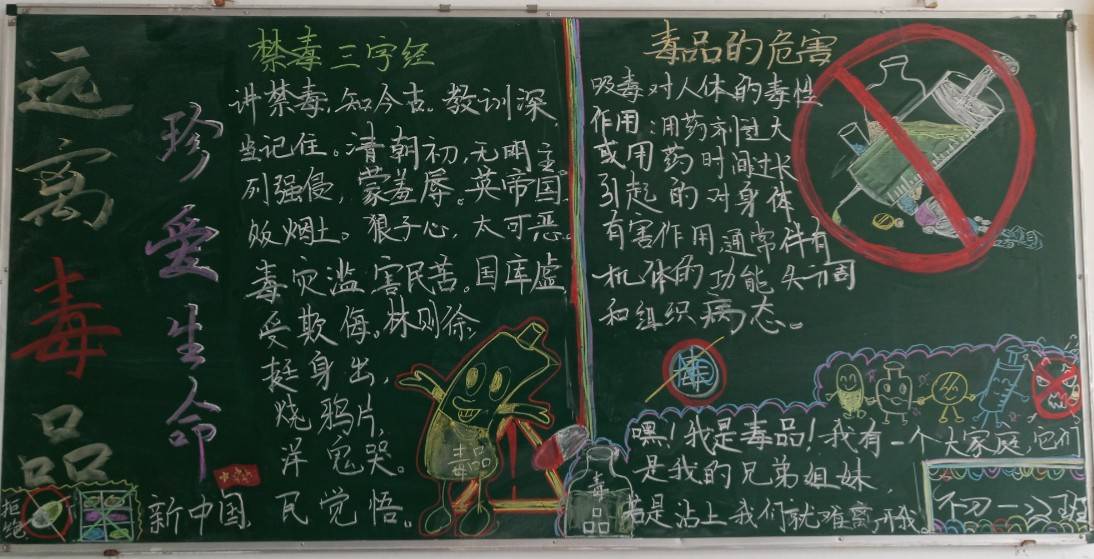 远离毒品
珍爱生命
禁毒三字经
讲禁毒,知今古。教训深,
当记住。清朝初,无明主。
列强侵,蒙羞辱。英帝国,
贩烟土。狠子心,太可恶。
毒灾滥,害民苦。国库虚,
受欺侮。林则徐,
挺身出,
烧鸦片,
洋鬼哭。
新中国,民觉悟。
毒品
毒品的危害
吸毒对人体的毒性
作用:用药剂过大
或用药时间过长
引起的对身体
有害作用,通常伴有
机体的功能失调
和组织病态。
毒
嘿!我是毒品!我有一个大家庭,它们
是我的兄弟姐妹,
若是沾上我们就难离开我。
毒品
拒绝